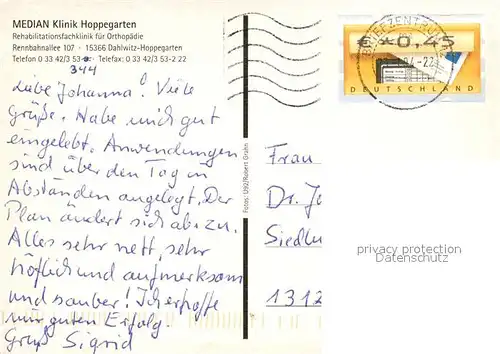 MEDIAN Klinik Hoppegarten
Rehabilitationsfachklinik für Orthopädie
Rennbahnallee 107 · 15366 Dahlwitz-Hoppegarten
Telefon 0 33 42/3 53-0 · Telefax: 0 33 42/3 53-2 22
344
Liebe Johanna! Viele
Grüße. Habe mich gut
eingelebt. Anwendungen
sind über den Tag in
Abständen angelegt. Der
Plan ändert sich ab + zu.
Alles sehr nett, sehr
höflich und aufmerksam
und sauber! Ich erhoffe
mir guten Erfolg.
Gruß Sigrid
Fotos: U92/Robert Grahn
BRIEFZENTRUM
0,45
DEUTSCHLAND
Frau
Dr. Jo
Siedlu
1312
privacy protection
Datenschutz